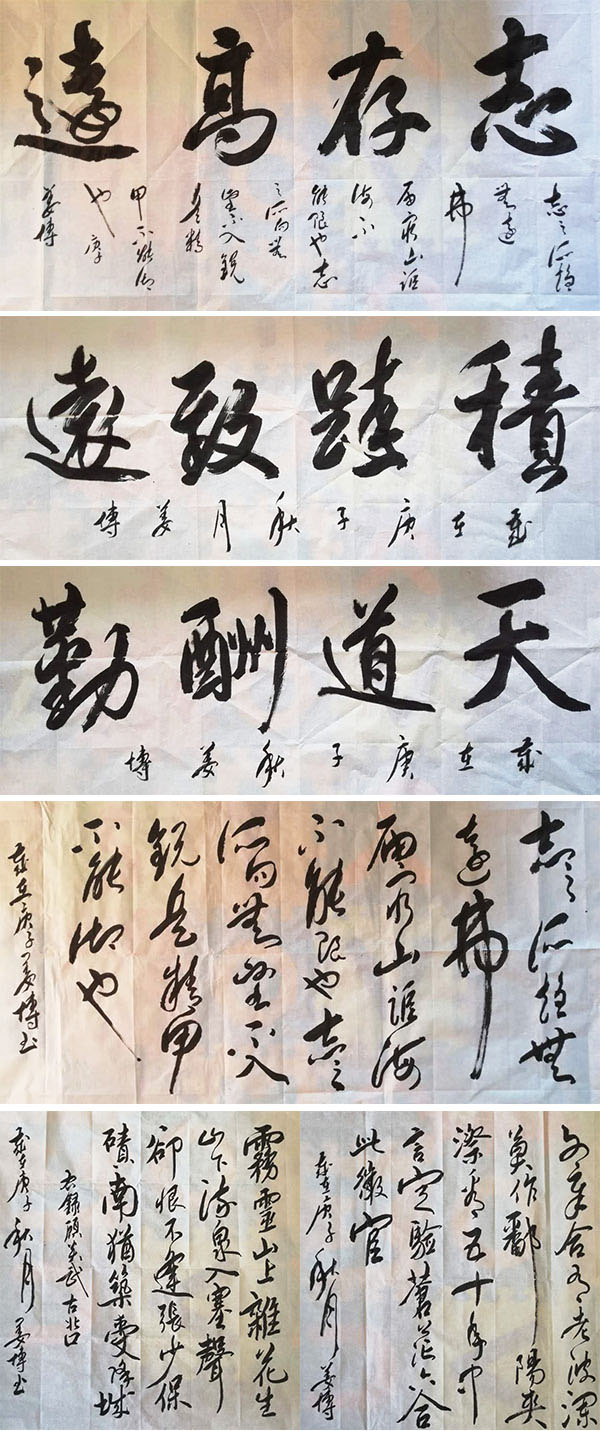 志存高遠
志之所趨
無遠
弗
屆窮山距
海不
能限也志
之所向無
堅不入銳
兵精
甲不能御
也 庚
姜博
積跬致遠
歲在庚子秋月姜博
天道酬勤
歲在庚子秋姜博
志之所趨無
遠弗
屆窮山距海
不能限也志之
所向無堅不入
銳兵精甲
不能御也
歲在庚子姜博书
文章合有老波瀾
莫作鄱陽夾
漈看五十年中
言定驗蒼茫六合
此微官
歲在庚子秋月姜博
霧靈山上雜花生
山下流泉入塞聲
卻恨不逢張少保
磧南猶築受降城
右錄顧炎武古北口
歲在庚子秋月姜博书